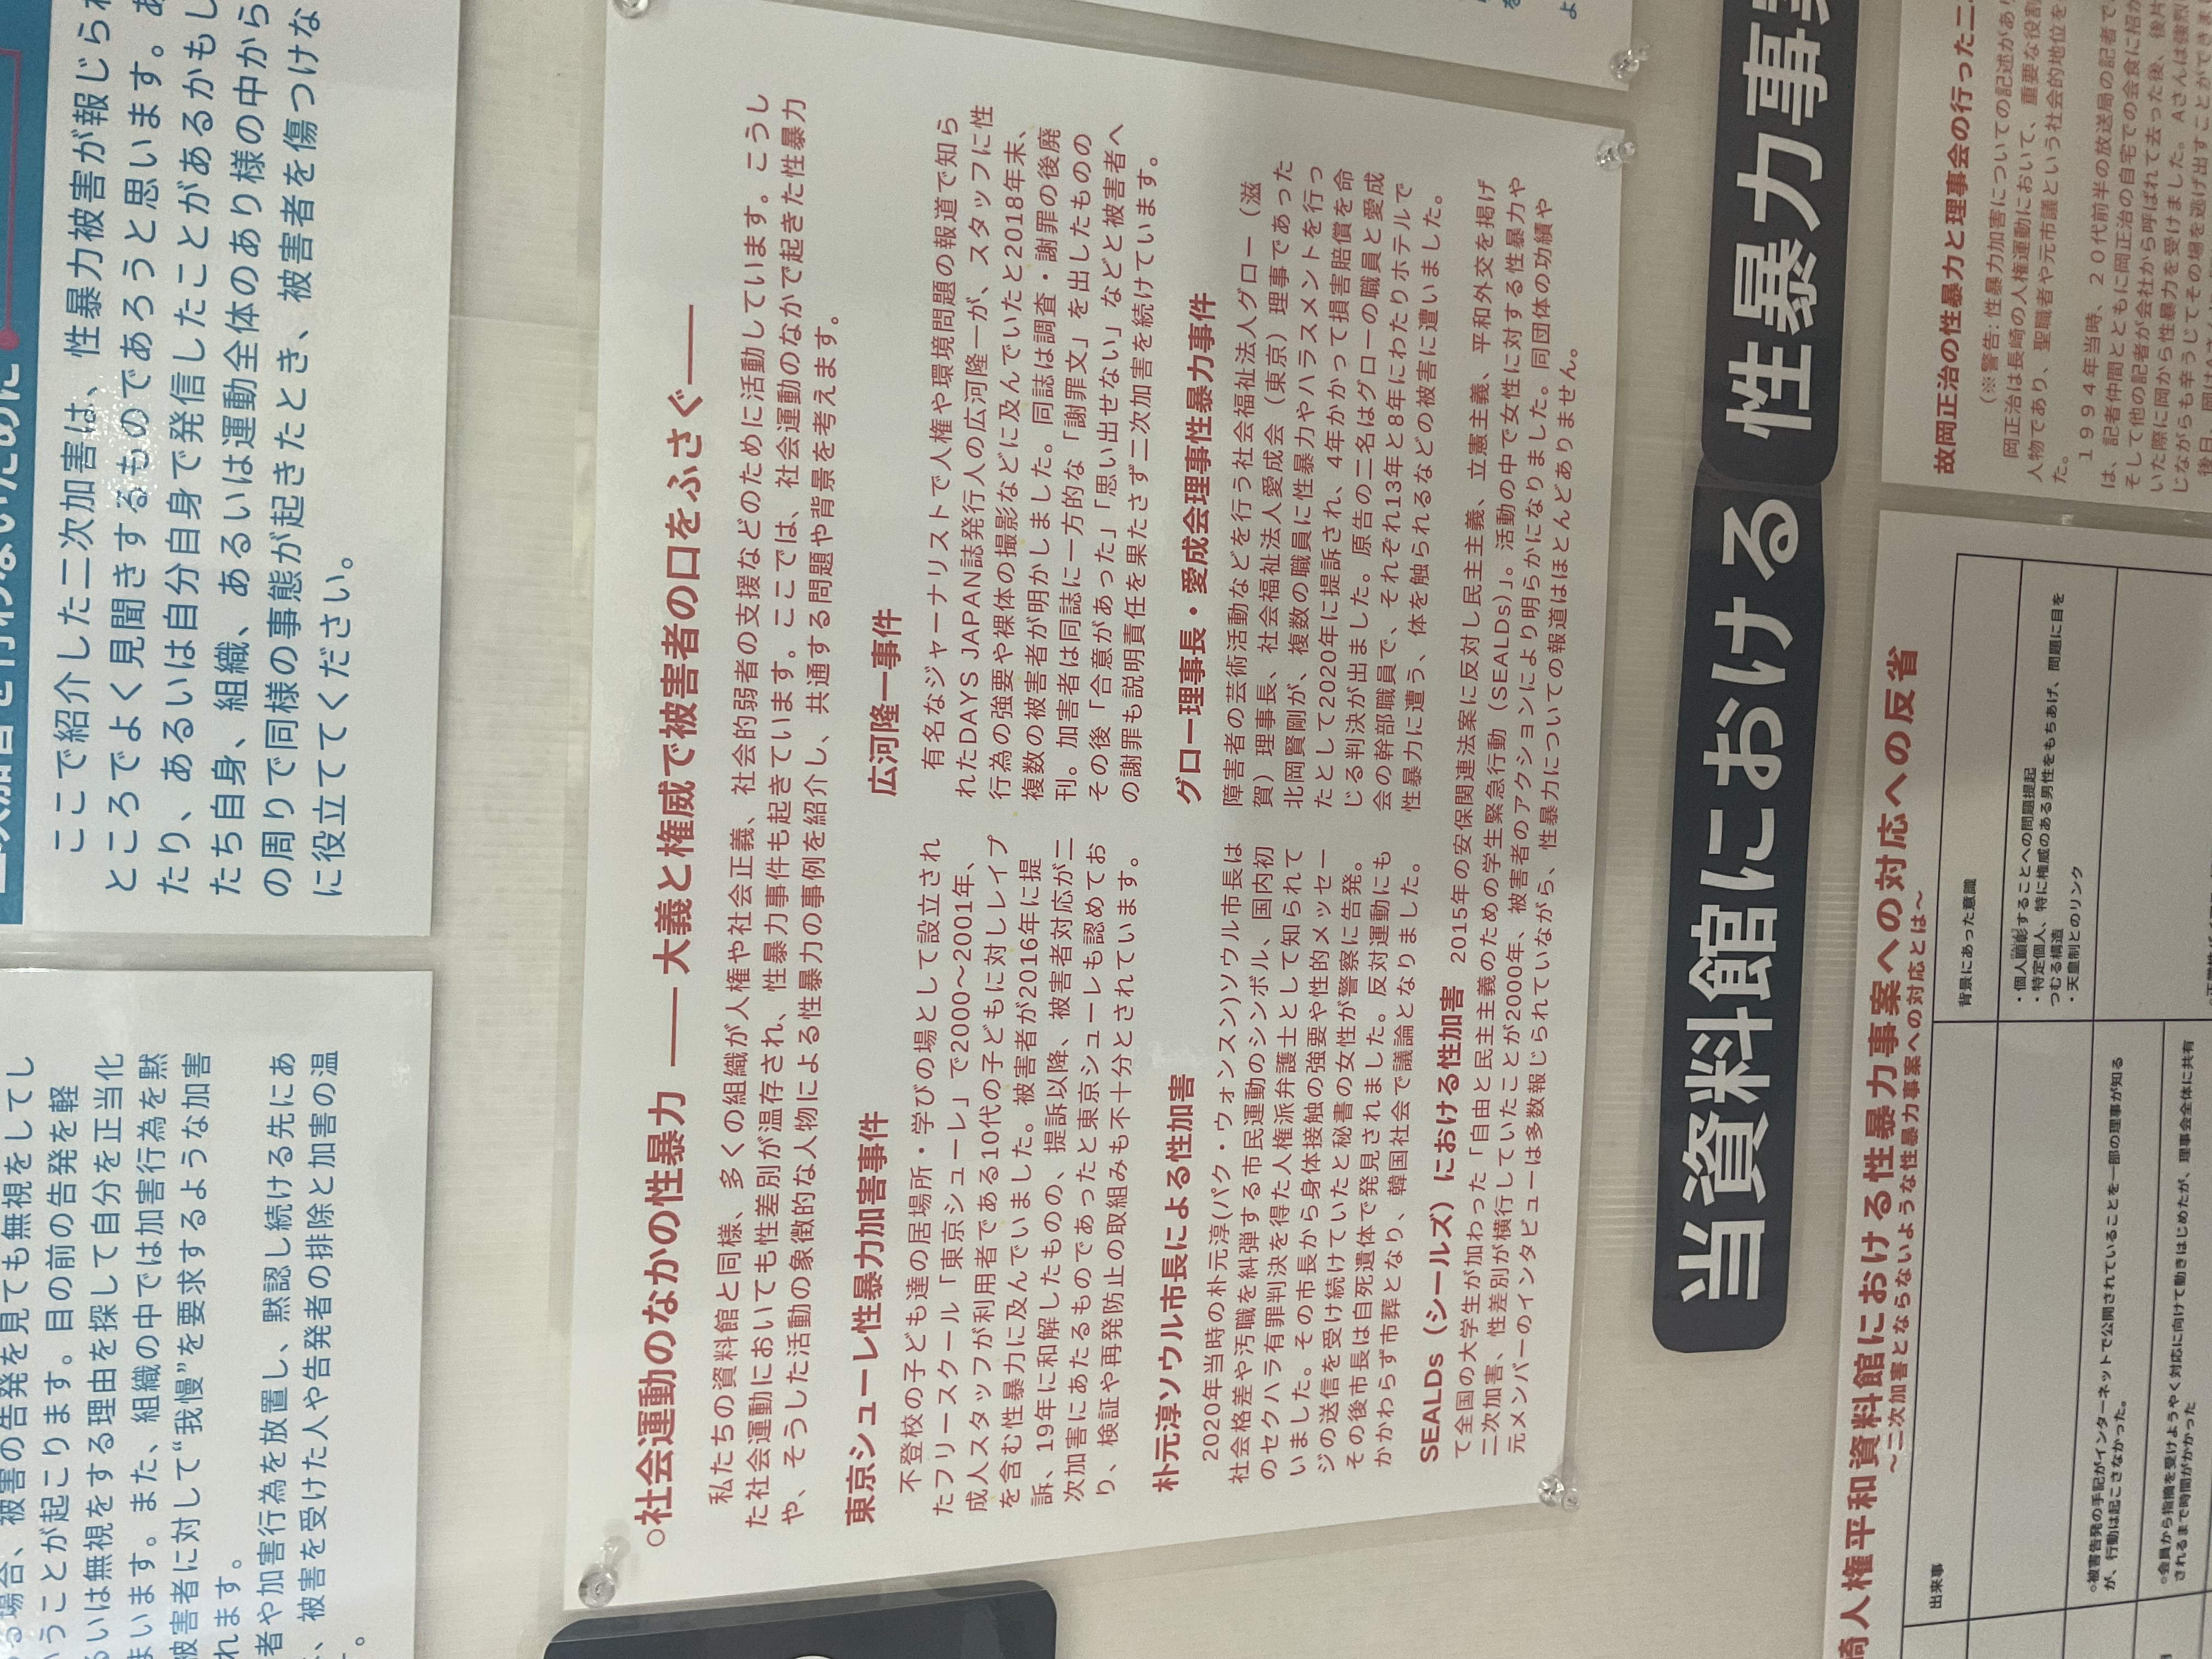 ここで紹介した二次加害は、性暴力被害が報じられ
ところでよく見聞きするものであろうと思います。あ
たり、あるいは自分自身で発信したことがあるかもし
たち自身、組織、あるいは運動全体のあり様の中から
の周りで同様の事態が起きたとき、被害者を傷つけな
に役立ててください。
場合、被害の告発を見ても無視をしてし
うことが起こります。目の前の告発を軽
るいは無視をする理由を探して自分を正当化
まいます。また、組織の中では加害行為を黙
被害者に対して“我慢”を要求するような加害
れます。
者や加害行為を放置し、黙認し続ける先にあ
、被害を受けた人や告発者の排除と加害の温
。
○社会運動のなかの性暴力 ――大義と権威で被害者の口をふさぐ――
私たちの資料館と同様、多くの組織が人権や社会正義、社会的弱者の支援などのために活動しています。こうし
た社会運動においても性差別が温存され、性暴力事件も起きています。ここでは、社会運動のなかで起きた性暴力
や、そうした活動の象徴的な人物による性暴力の事例を紹介し、共通する問題や背景を考えます。
東京シューレ性暴力加害事件
不登校の子ども達の居場所・学びの場として設立され
たフリースクール「東京シューレ」で2000～2001年、
成人スタッフが利用者である10代の子どもに対しレイプ
を含む性暴力に及んでいました。被害者が2016年に提
訴、19年に和解したものの、提訴以降、被害者対応が二
次加害にあたるものであったと東京シューレも認めてお
り、検証や再発防止の取組みも不十分とされています。
広河隆一事件
有名なジャーナリストで人権や環境問題の報道で知ら
れたDAYS JAPAN誌発行人の広河隆一が、スタッフに性
行為の強要や裸体の撮影などに及んでいたと2018年末、
複数の被害者が明かしました。同誌は調査・謝罪の後廃
刊。加害者は同誌に一方的な「謝罪文」を出したものの
その後「合意があった」「思い出せない」などと被害者へ
の謝罪も説明責任を果たさず二次加害を続けています。
朴元淳ソウル市長による性加害
2020年当時の朴元淳(パク・ウォンスン)ソウル市長は
社会格差や汚職を糾弾する市民運動のシンボル、国内初
のセクハラ有罪判決を得た人権派弁護士として知られて
いました。その市長から身体接触の強要や性的メッセー
ジの送信を受け続けていたと秘書の女性が警察に告発。
その後市長は自死遺体で発見されました。反対運動にも
かかわらず市葬となり、韓国社会で議論となりました。
グロー理事長・愛成会理事性暴力事件
障害者の芸術活動などを行う社会福祉法人グロー（滋
賀）理事長、社会福祉法人愛成会（東京）理事であった
北岡賢剛が、複数の職員に性暴力やハラスメントを行っ
たとして2020年に提訴され、4年かかって損害賠償を命
じる判決が出ました。原告の二名はグローの職員と愛成
会の幹部職員で、それぞれ13年と8年にわたりホテルで
性暴力に遭う、体を触られるなどの被害に遭いました。
SEALDs（シールズ）における性加害 2015年の安保関連法案に反対し民主主義、立憲主義、平和外交を掲げ
て全国の大学生が加わった「自由と民主主義のための学生緊急行動（SEALDs）」。活動の中で女性に対する性暴力や
二次加害、性差別が横行していたことが2000年、被害者のアクションにより明らかになりました。同団体の功績や
元メンバーのインタビューは多数報じられていながら、性暴力についての報道はほとんどありません。
当資料館における 性暴力事
崎人権平和資料館における性暴力事案への対応への反省
～二次加害とならないような性暴力事案への対応とは～
出来事
背景にあった意識
・個人顕彰することへの問題提起
・特定個人、特に権威のある男性をもちあげ、問題に目を
つむる構造
・天皇制とのリンク
○被害告発の手記がインターネットで公開されていることを一部の理事が知る
が、行動は起こさなかった。
○会員から指摘を受けようやく対応に向けて動きはじめたが、理事会全体に共有
されるまで時間がかかった
故岡正治の性暴力と理事会の行った二
（※警告：性暴力加害についての記述があり
岡正治は長崎の人権運動において、重要な役割
人物であり、聖職者や元市議という社会的地位を
た。
１９９４年当時、２０代前半の放送局の記者で
は、記者仲間とともに岡正治の自宅での会食に招か
そして他の記者が会社から呼ばれて去った後、後片
いた際に岡から性暴力を受けました。Ａさんは強烈
じながらも辛うじてその場を逃げ出すことができ